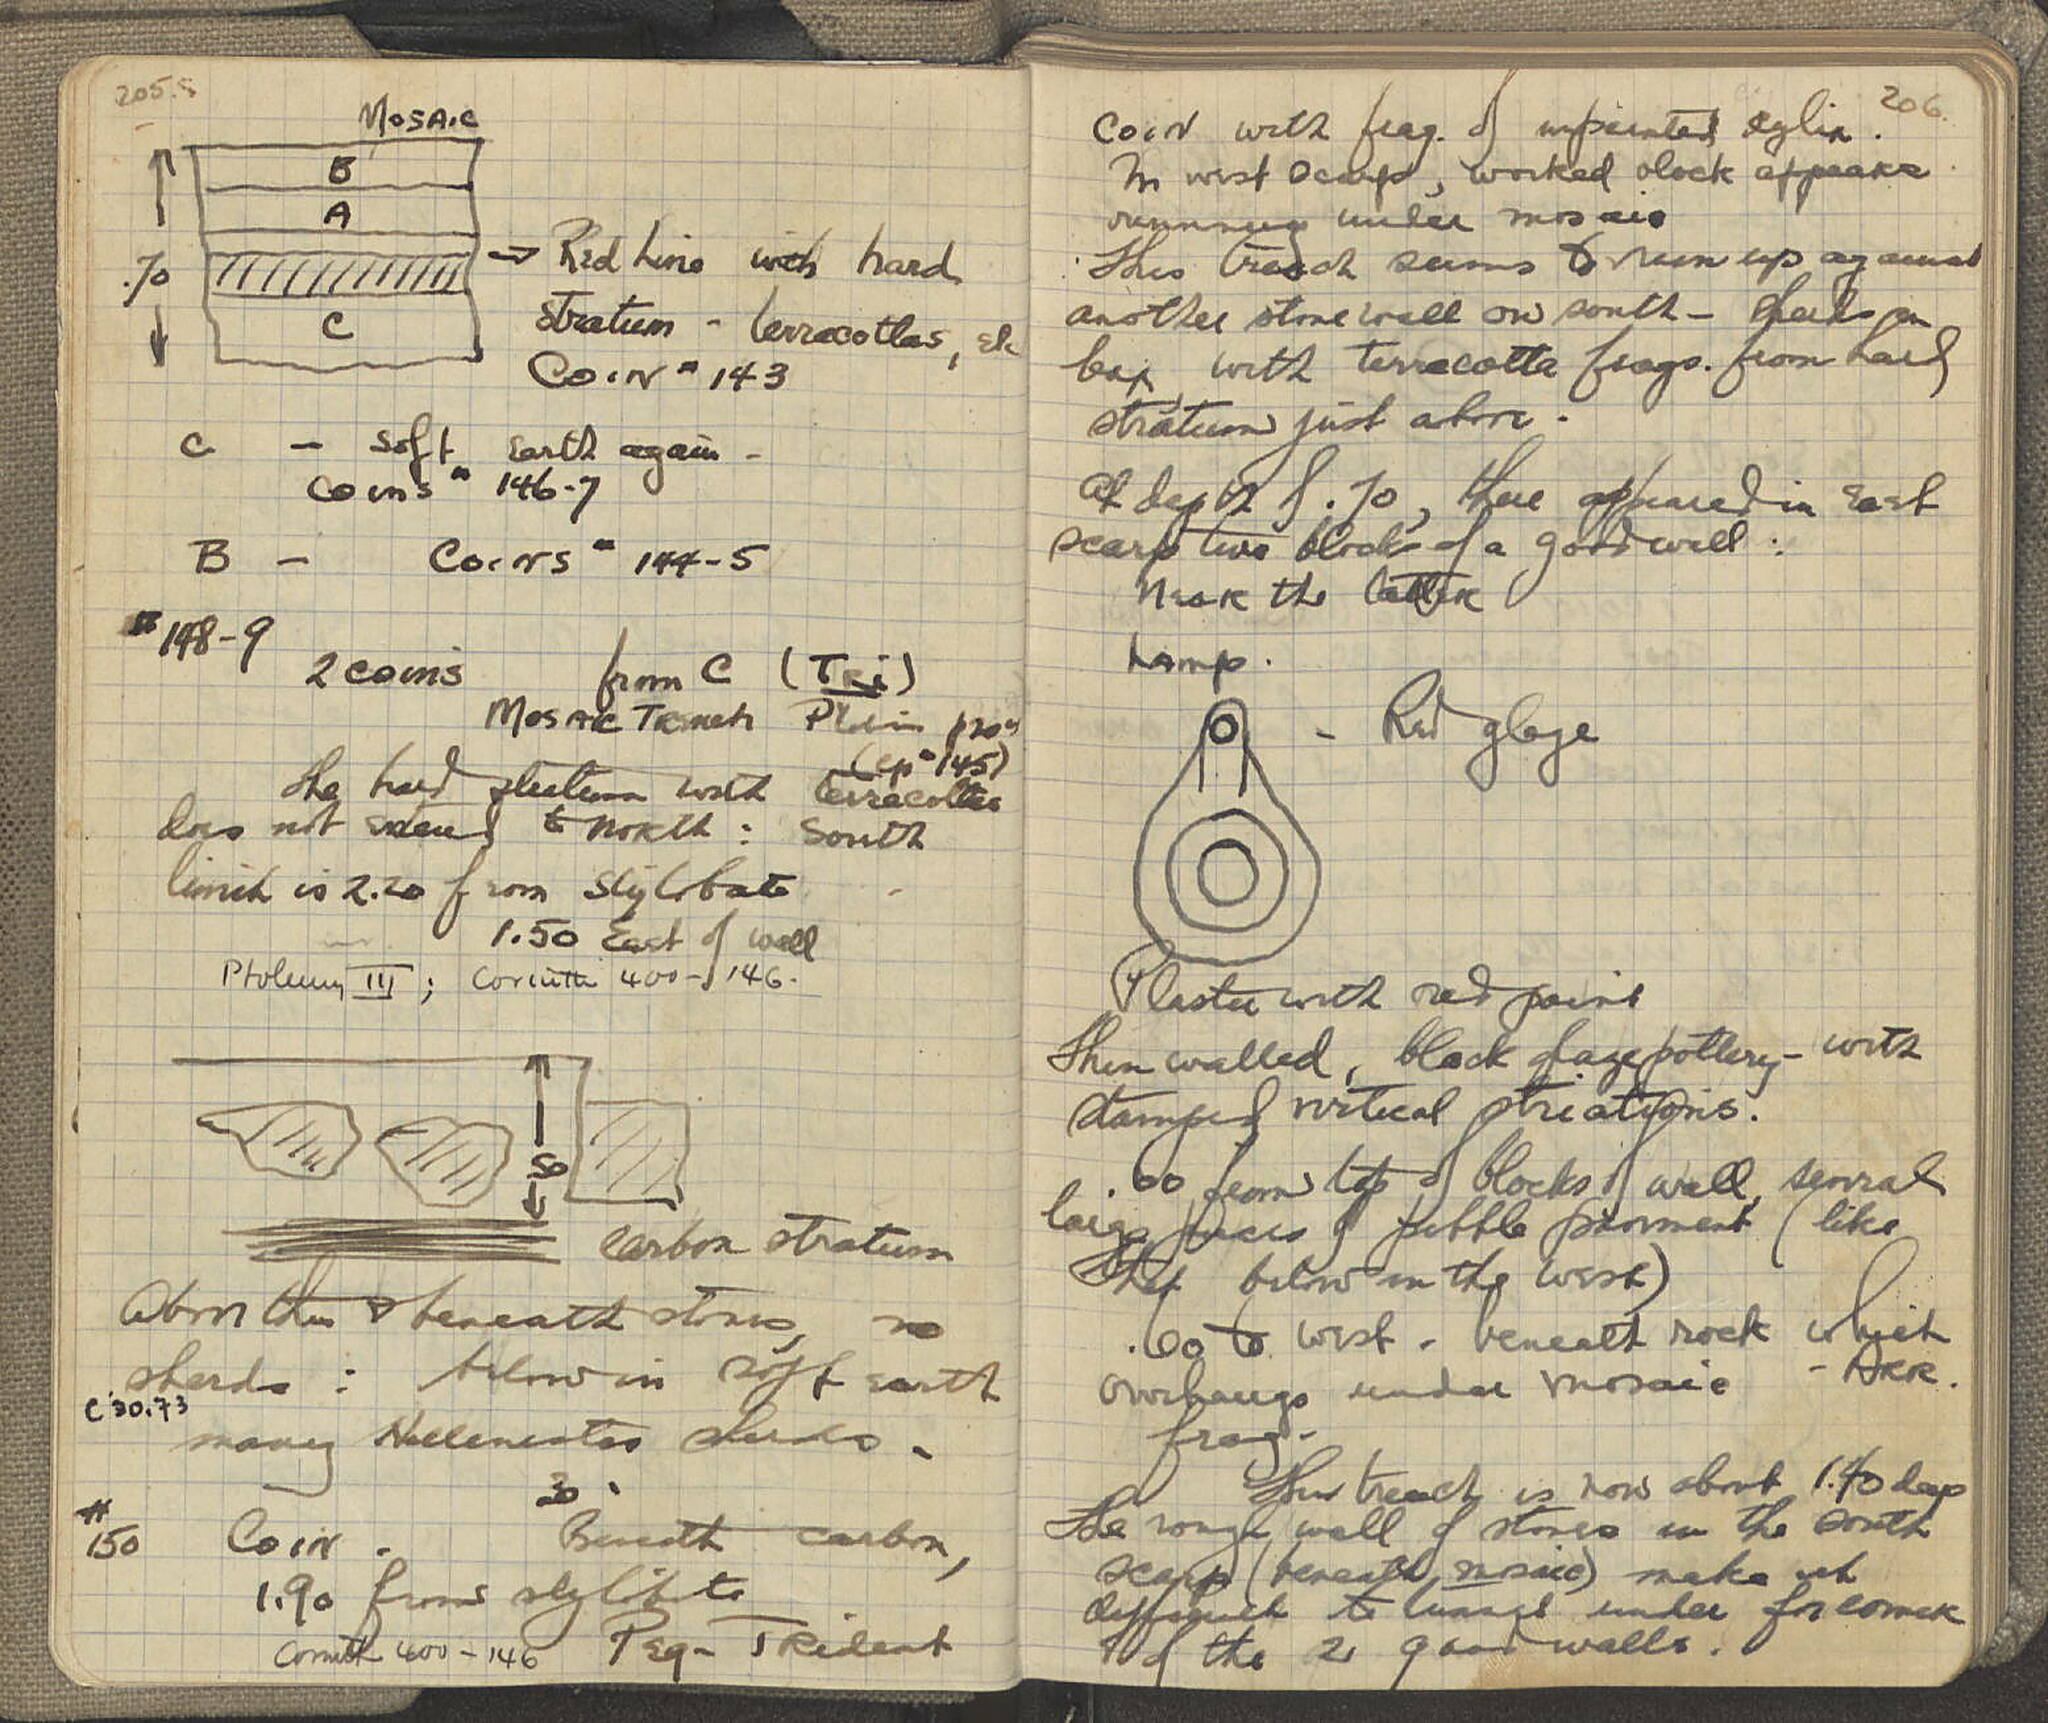 205.5
Mosaic
B
A
.70
→ Red line with hard
stratum - terracottas, etc
C
Coin # 143
C - soft earth again -
Coins # 146-7
B - Coins # 144-5
# 148-9
2 coins from C (Tri)
Mosaic Trench Plain
(cp # 145)
The hard stratum with terracottas
does not extend to north : south
limit is 2.20 from stylobate
1.50 East of wall
Ptolemy III ; Corinth 400-146.
.50
carbon stratum
Above this & beneath stones, no
sherds : below in soft earth
C 30.73
many Hellenistic sherds.
30.
# 150 Coin. Beneath carbon,
1.90 from stylobate
Corinth 400-146 Peg - Trident
206.
Coin with frag. of
In west scarp, worked block appears
running under mosaic
This trench seems to run up against
another stone wall on south - sherds in
bag with terracotta frags. from hard
stratum just above.
At depth of .70, there appeared in East
scarp two blocks of a good wall :
Near the latter
Lamp.
- Red glaze
Plaster with red paint
Thin walled, black glaze pottery - with
stamped vertical striations.
.60 from top of blocks of wall, several
large pieces of pebble pavement (like
that below in the west)
.60 to west - beneath rock which
overhangs under mosaic
frag.
This trench is now about 1.40 deep
The rough wall of stones in the south
scarp (beneath mosaic) make it
difficult to tunnel under for corner
of the 2 good walls.